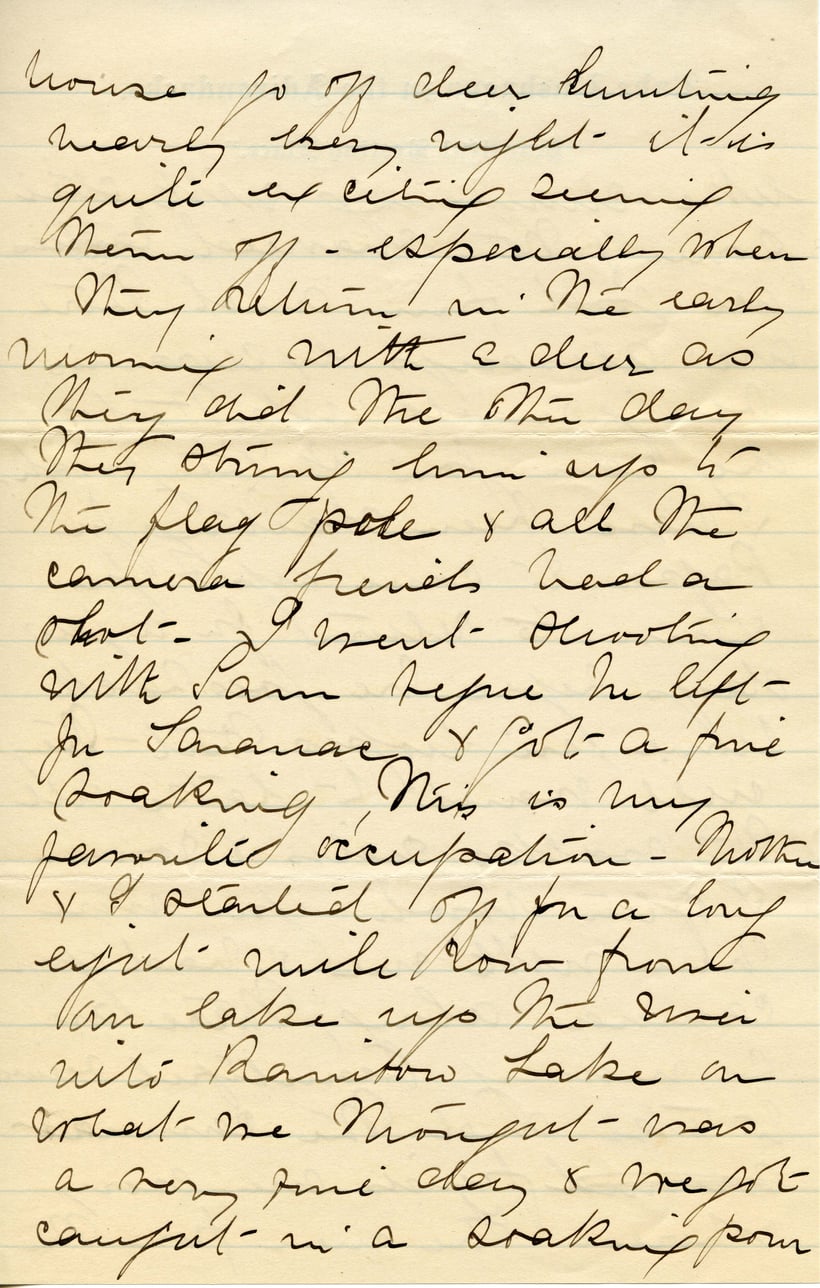 house go off deer hunting
nearly every night - it is
quite exciting seeing
them off - especially when
they return in the early
morning with a deer as
they did the other day
they strung him up to
the flag pole & all the
camera fiends had a
shot - I went shooting
with Sam before he left
for Saranac & got a fine
soaking, this is my
favorite occupation - Mother
& I started off for a long
eight mile row from
our lake up the river
into Rainbow Lake on
what we thought was
a very fine day & we got
caught in a soaking pour